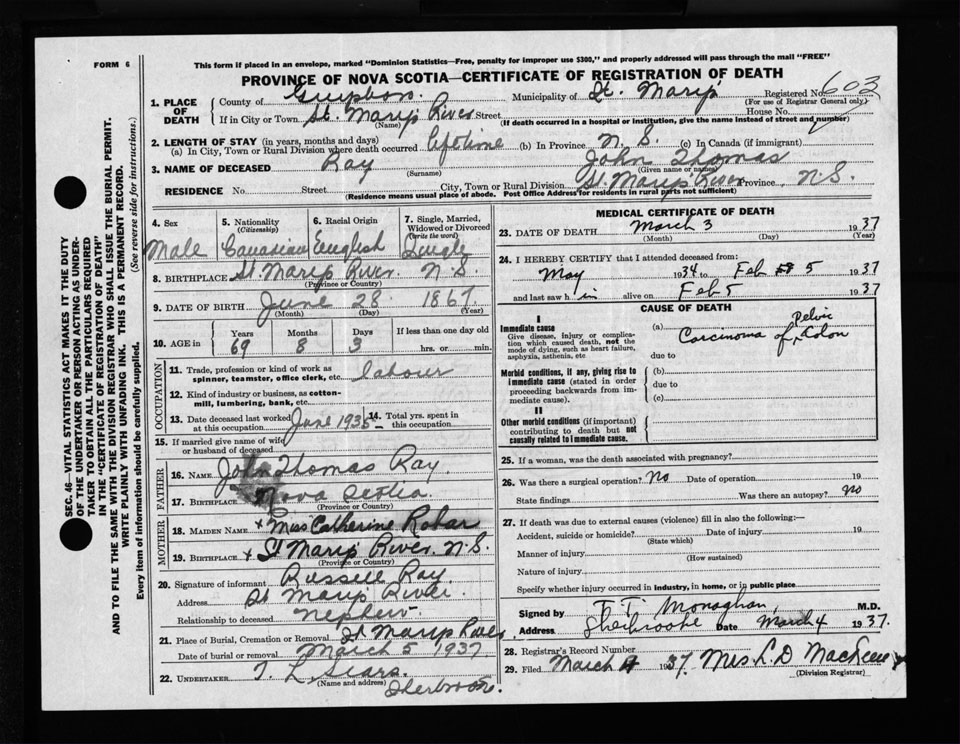 FORM 6
This form if placed in an envelope, marked "Dominion Statistics—Free, penalty for improper use $300," and properly addressed will pass through the mail "FREE"
PROVINCE OF NOVA SCOTIA—CERTIFICATE OF REGISTRATION OF DEATH
1. PLACE OF DEATH
County of Guysboro. Municipality of St. Mary's Registered No. 603
(For use of Registrar General only.)
If in City or Town St. Mary's River Street House No.
(Name) (If death occurred in a hospital or institution, give the name instead of street and number)
2. LENGTH OF STAY (in years, months and days)
(a) In City, Town or Rural Division where death occurred lifetime (b) In Province N.S. (c) In Canada (if immigrant)
3. NAME OF DECEASED Ray John Thomas
(Surname) (Given name or names)
RESIDENCE No. Street City, Town or Rural Division St. Mary's River Province N.S.
(Residence means usual place of abode. Post Office Address for residents in rural parts not sufficient)
4. Sex Male
5. Nationality (Citizenship) Canadian
6. Racial Origin English
7. Single, Married, Widowed or Divorced (Write the word) Single
8. BIRTHPLACE St. Mary's River. N.S.
(Province or Country)
9. DATE OF BIRTH June 28 1867
(Month) (Day) (Year)
10. AGE in Years Months Days If less than one day old
69 8 3 hrs. or min.
OCCUPATION
11. Trade, profession or kind of work as spinner, teamster, office clerk, etc. labour
12. Kind of industry or business, as cotton-mill, lumbering, bank, etc.
13. Date deceased last worked at this occupation June 1935
14. Total yrs. spent in this occupation
15. If married give name of wife or husband of deceased
FATHER
16. NAME John Thomas Ray
17. BIRTHPLACE Nova Scotia
(Province or Country)
MOTHER
18. MAIDEN NAME x Miss Catherine Robar
19. BIRTHPLACE x St Mary's River. N.S.
(Province or Country)
20. Signature of informant Russell Ray.
Address St Mary's River
Relationship to deceased nephew
21. Place of Burial, Cremation or Removal St Mary's River
Date of burial or removal March 5 1937
22. UNDERTAKER Sherbrooke.
(Name and address)
MEDICAL CERTIFICATE OF DEATH
23. DATE OF DEATH March 3 1937
(Month) (Day) (Year)
24. I HEREBY CERTIFY that I attended deceased from:
May 1934 to Feb 5 1937
and last saw him alive on Feb 5 1937
CAUSE OF DEATH
I
Immediate cause
Give disease, injury or complication which caused death, not the mode of dying, such as heart failure, asphyxia, asthenia, etc
(a) Carcinoma of Pelvic Colon
due to
Morbid conditions, if any, giving rise to immediate cause (stated in order proceeding backwards from immediate cause).
(b)
due to
(c)
II
Other morbid conditions (if important) contributing to death but not causally related to immediate cause.
25. If a woman, was the death associated with pregnancy?
26. Was there a surgical operation? No Date of operation 19
State findings Was there an autopsy? no
27. If death was due to external causes (violence) fill in also the following:—
Accident, suicide or homicide? Date of injury 19
(State which)
Manner of injury
(How sustained)
Nature of injury
Specify whether injury occurred in industry, in home, or in public place
Signed by T. T. Monaghan, M.D.
Address Sherbrooke Date March 4 1937.
28. Registrar's Record Number
29. Filed March 1937. Mrs L. D
(Division Registrar)
SEC. 46—VITAL STATISTICS ACT MAKES IT THE DUTY
OF THE UNDERTAKER OR PERSON ACTING AS UNDER-
TAKER TO OBTAIN ALL THE PARTICULARS REQUIRED
IN THE "CERTIFICATE OF REGISTRATION OF DEATH"
AND TO FILE THE SAME WITH THE DIVISION REGISTRAR WHO SHALL ISSUE THE BURIAL PERMIT.
WRITE PLAINLY WITH UNFADING INK. THIS IS A PERMANENT RECORD.
Every item of information should be carefully supplied. (See reverse side for instructions.)